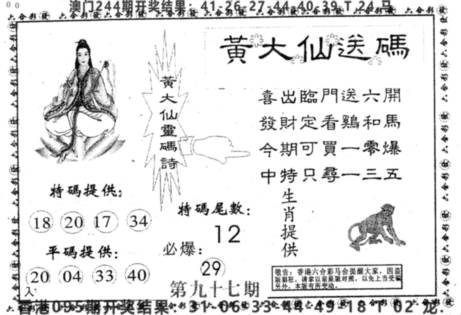 澳门244期开奖结果：41-26-27-44-40-39 T 24 马
黃大仙送碼
黃大仙靈碼詩
喜出臨門送六開
發財定看鷄和馬
今期可買一零爆
中特只尋一三五
生肖提供
特碼提供：
18 20 17 34
平碼提供：
20 04 33 40
特碼尾數：
12
必爆：
29
第九十七期
敬告：香港六合彩马会提醒大家，因盗
香港095期开奖结果：31-06-33-44-49-18 T 02 龙